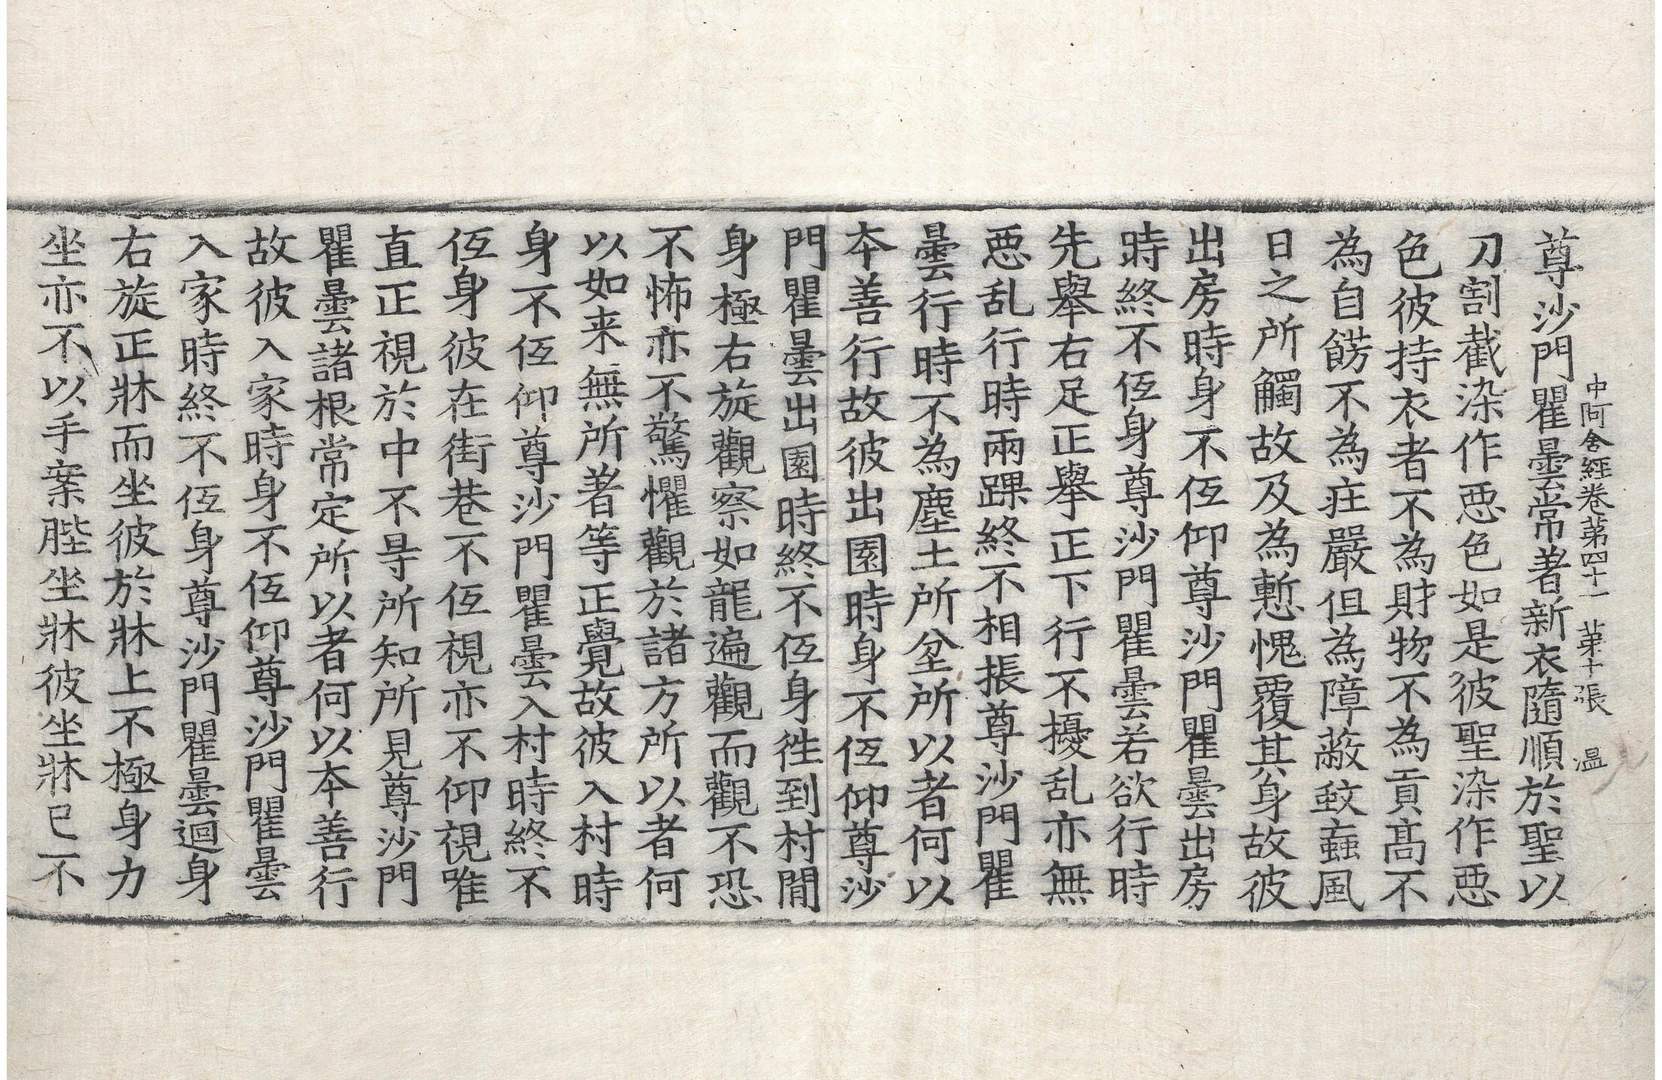 中阿含經卷第四十一 第十張 温
尊沙門瞿曇常著新衣隨順於聖以
刀割截染作惡色如是彼聖染作惡
色彼持衣者不為財物不為貢髙不
為自餝不為庄嚴但為障蔽蚊䖟風
日之所觸故及為慙愧覆其身故彼
出房時身不仾仰尊沙門瞿曇出房
時終不仾身尊沙門瞿曇若欲行時
先舉右足正舉正下行不擾乱亦無
惡乱行時兩踝終不相掁尊沙門瞿
曇行時不為塵土所坌所以者何以
本善行故彼出園時身不仾仰尊沙
門瞿曇出園時終不仾身徃到村間
身極右旋觀察如龍遍觀而觀不恐
不怖亦不驚懼觀於諸方所以者何
以如来無所著等正覺故彼入村時
身不仾仰尊沙門瞿曇入村時終不
仾身彼在街巷不仾視亦不仰視唯
直正視於中不㝵所知所見尊沙門
瞿曇諸根常定所以者何以本善行
故彼入家時身不仾仰尊沙門瞿曇
入家時終不仾身尊沙門瞿曇迴身
右旋正牀而坐彼於牀上不極身力
坐亦不以手案䏶坐牀彼坐牀已不